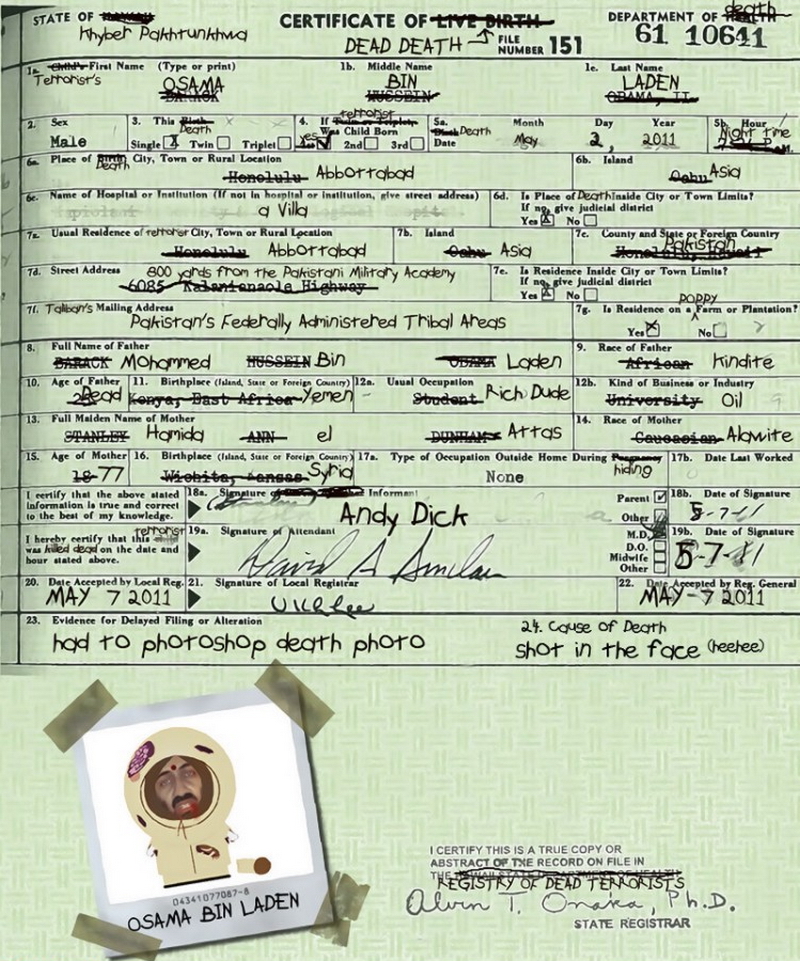 STATE OF HAWAII CERTIFICATE OF LIVE BIRTH DEPARTMENT OF HEALTH death
Khyber Pakhtunkhwa DEAD DEATH FILE NUMBER 151 61 10641
1a. Child's First Name (Type or print) 1b. Middle Name 1c. Last Name
Terrorist's OSAMA BIN LADEN
BARACK HUSSEIN OBAMA, II
2. Sex 3. This Birth Death 4. If Twin or Triplet, terrorist Was Child Born 5a. Birth Death Date Month Day Year 5b. Hour
Male Single X Twin Triplet Yes 2nd 3rd May 2, 2011 Night time
6a. Place of Birth Death City, Town or Rural Location 6b. Island
Honolulu Abbottabad Oahu Asia
6c. Name of Hospital or Institution (If not in hospital or institution, give street address) 6d. Is Place of Death Inside City or Town Limits?
If no, give judicial district
a Villa Yes No
7a. Usual Residence of terrorist City, Town or Rural Location 7b. Island 7c. County and State or Foreign Country
Honolulu Abbottabad Oahu Asia Pakistan
Honolulu, Hawaii
7d. Street Address 800 yards from the Pakistani Military Academy 7e. Is Residence Inside City or Town Limits?
If no, give judicial district
6085 Kalanianaole Highway Yes No
7f. Taliban's Mailing Address 7g. Is Residence on a poppy Farm or Plantation?
Pakistan's Federally Administered Tribal Areas Yes No
8. Full Name of Father 9. Race of Father
BARACK Mohammed HUSSEIN Bin OBAMA Laden African Kindite
10. Age of Father 11. Birthplace (Island, State or Foreign Country) 12a. Usual Occupation 12b. Kind of Business or Industry
Dead Kenya, East Africa Yemen Student Rich Dude University Oil
13. Full Maiden Name of Mother 14. Race of Mother
STANLEY Hamida ANN el DUNHAM Attas Caucasian Alawite
15. Age of Mother 16. Birthplace (Island, State or Foreign Country) 17a. Type of Occupation Outside Home During Pregnancy hiding 17b. Date Last Worked
18 77 Wichita, Kansas Syria None
I certify that the above stated information is true and correct to the best of my knowledge. 18a. Signature of Informant Parent Other 18b. Date of Signature
Andy Dick 5-7-11
I hereby certify that this child terrorist was killed dead on the date and hour stated above. 19a. Signature of Attendant M.D. D.O. Midwife Other 19b. Date of Signature
David A Sinclair 5-7-11
20. Date Accepted by Local Reg. 21. Signature of Local Registrar 22. Date Accepted by Reg. General
MAY 7 2011 MAY-7 2011
23. Evidence for Delayed Filing or Alteration 24. Cause of Death
had to photoshop death photo shot in the face (heehee)
04341077087-8
OSAMA BIN LADEN
I CERTIFY THIS IS A TRUE COPY OR
ABSTRACT OF THE RECORD ON FILE IN
THE HAWAII STATE DEPARTMENT OF HEALTH
REGISTRY OF DEAD TERRORISTS
Alvin T. Onaka, Ph.D.
STATE REGISTRAR